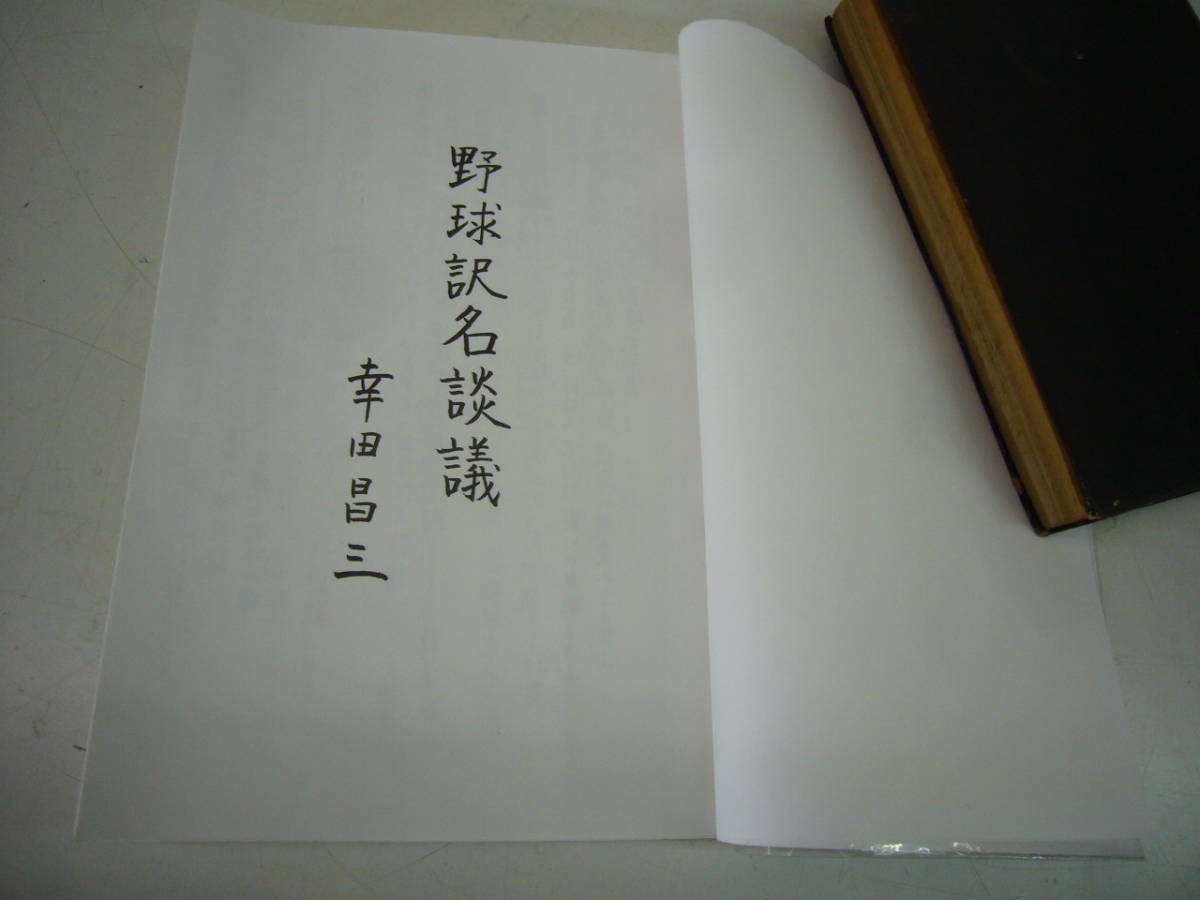 野球訳名談議
幸田昌三